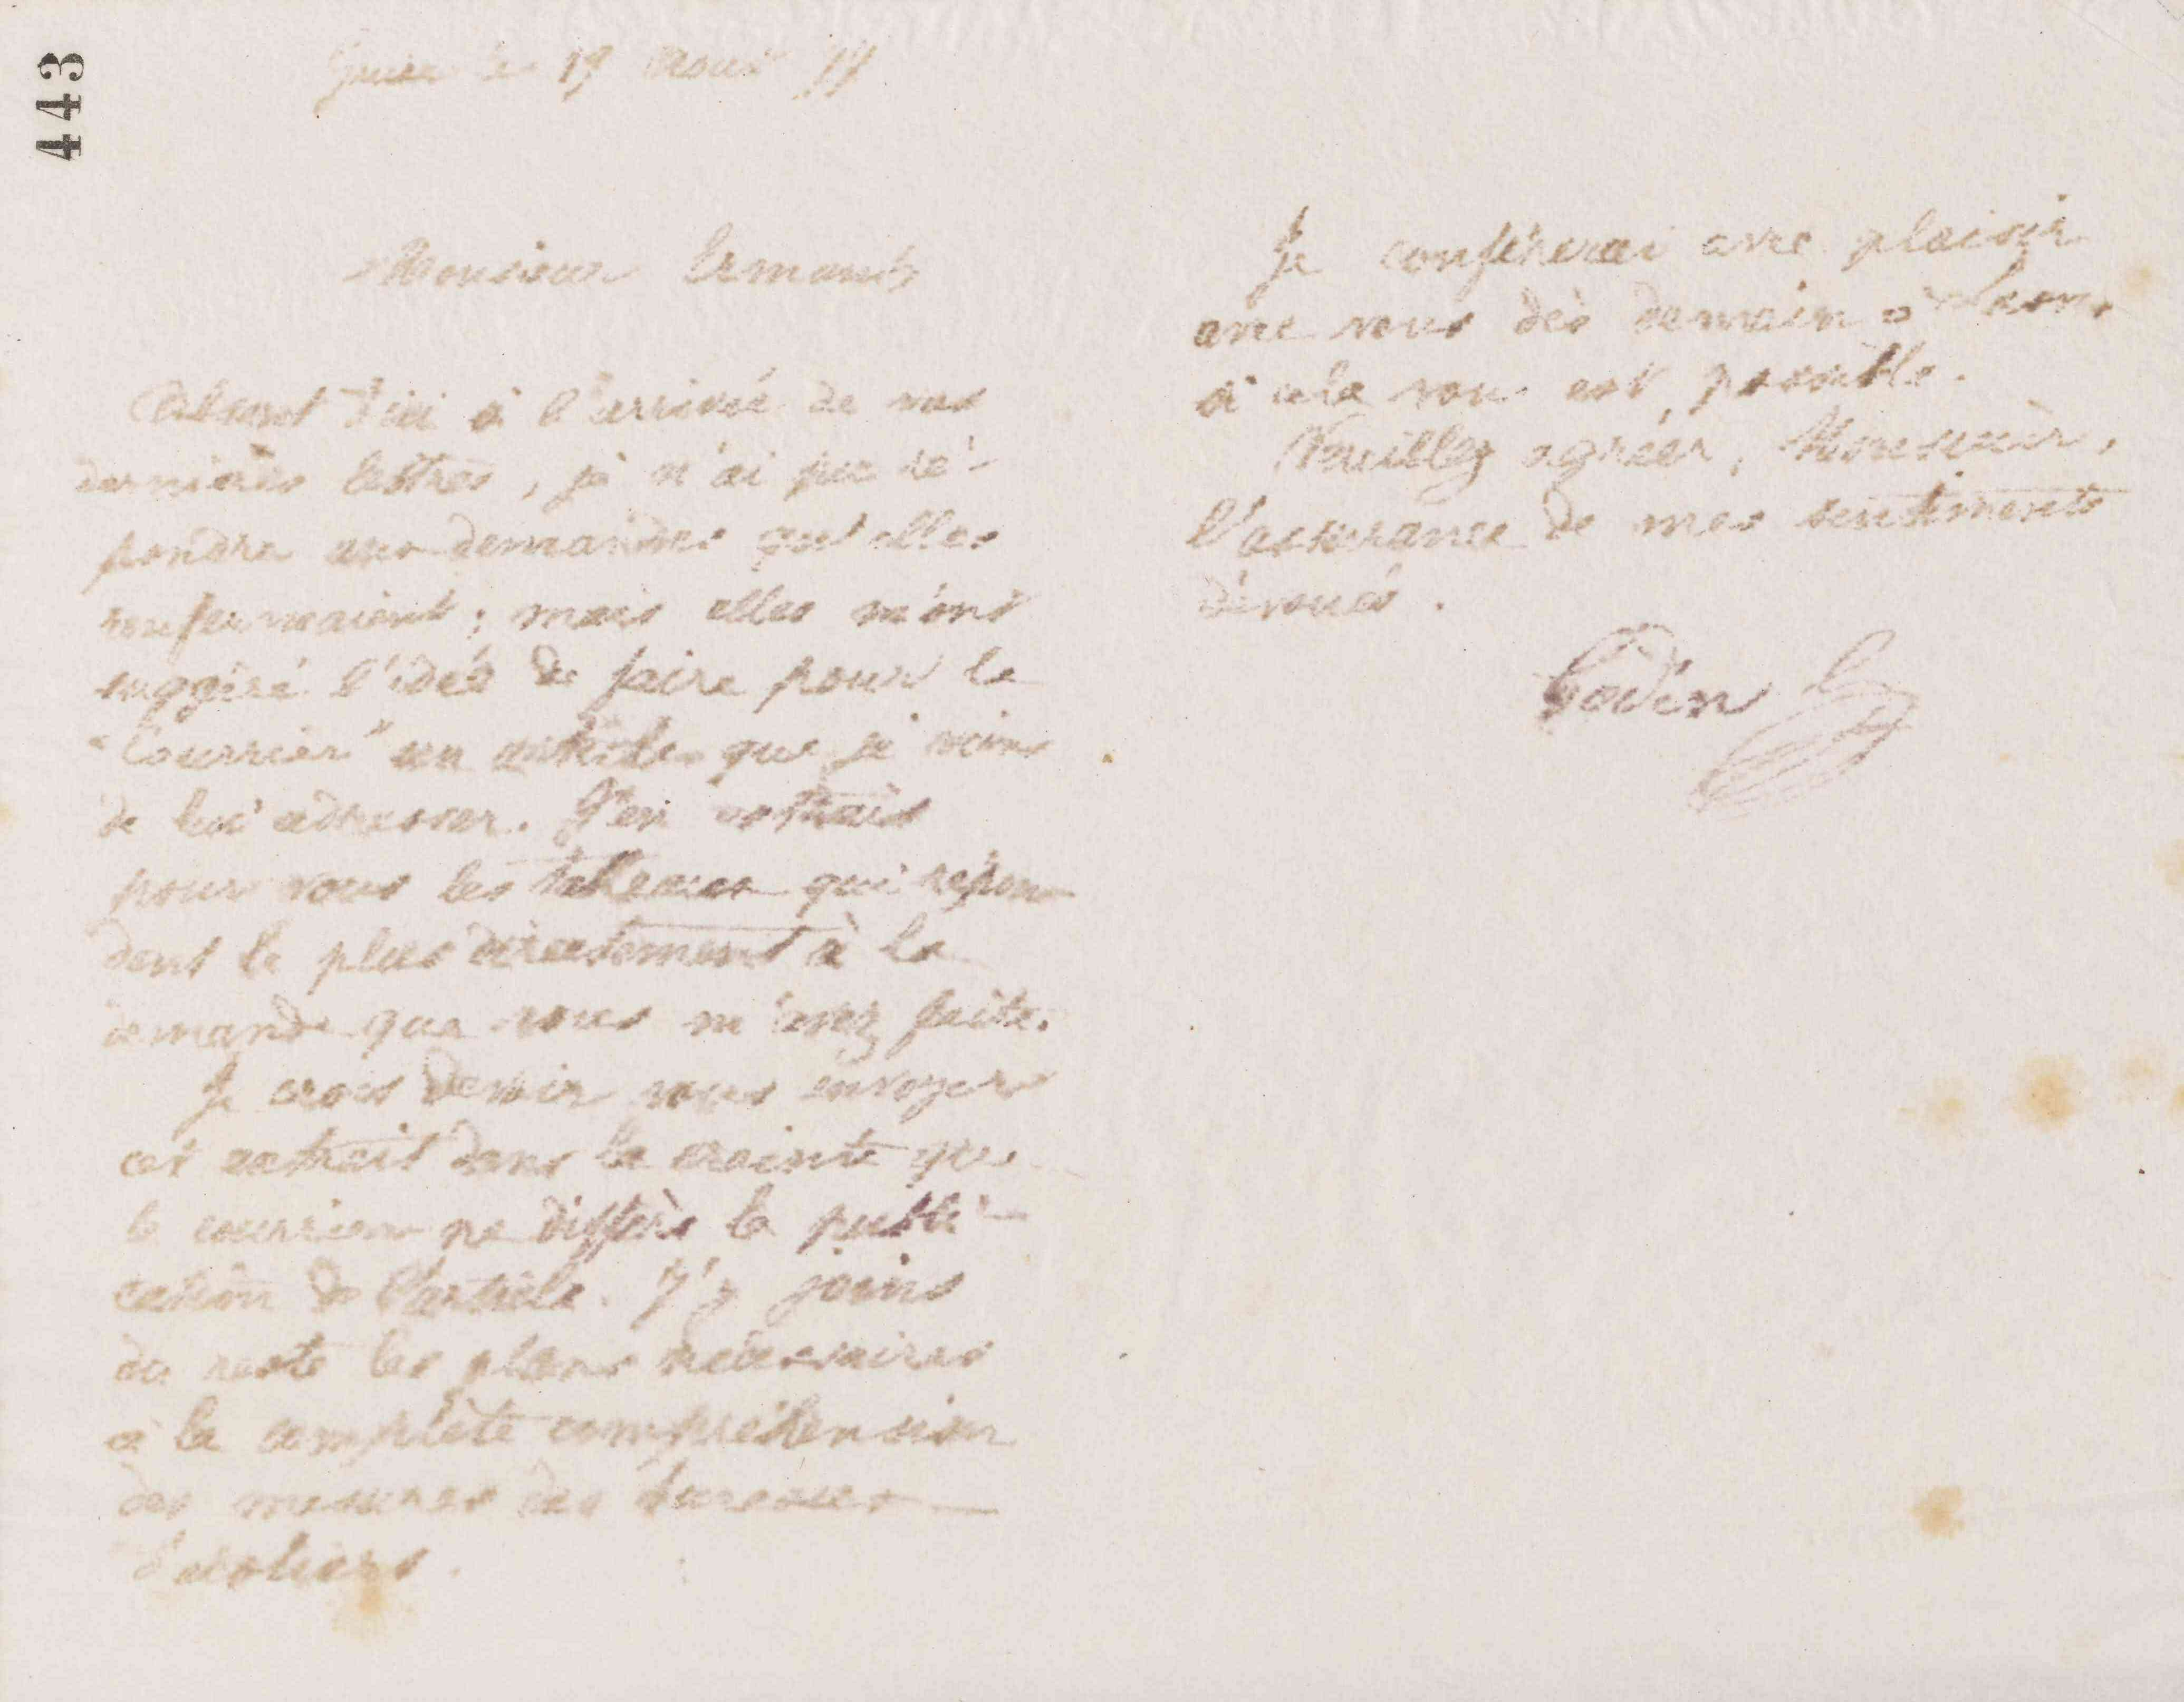 443
Guise le 19 Août 77
Monsieur Ermant
Absent d'ici à l'arrivée de vos
dernières lettres, je n'ai pu ré-
pondre aux demandes qu'elles
renfermaient ; mais elles m'ont
suggéré l'idée de faire pour le
"Courrier" un article que je viens
de lui adresser. J'en extrais
pour vous les tableaux qui répon-
dent le plus directement à la
demande que vous m'avez faite.
Je crois devoir vous envoyer
cet extrait dans la crainte que
le courrier ne diffère la publi-
cation de l'article. J'y joins
du reste les plans nécessaires
à la complète compréhension
des mesures des bureaux
d'écoliers.
Je conférerai avec plaisir
avec vous dès demain à Laon,
si cela vous est possible.
Veuillez agréer, Monsieur,
l'assurance de mes sentiments
dévoués.
Godin